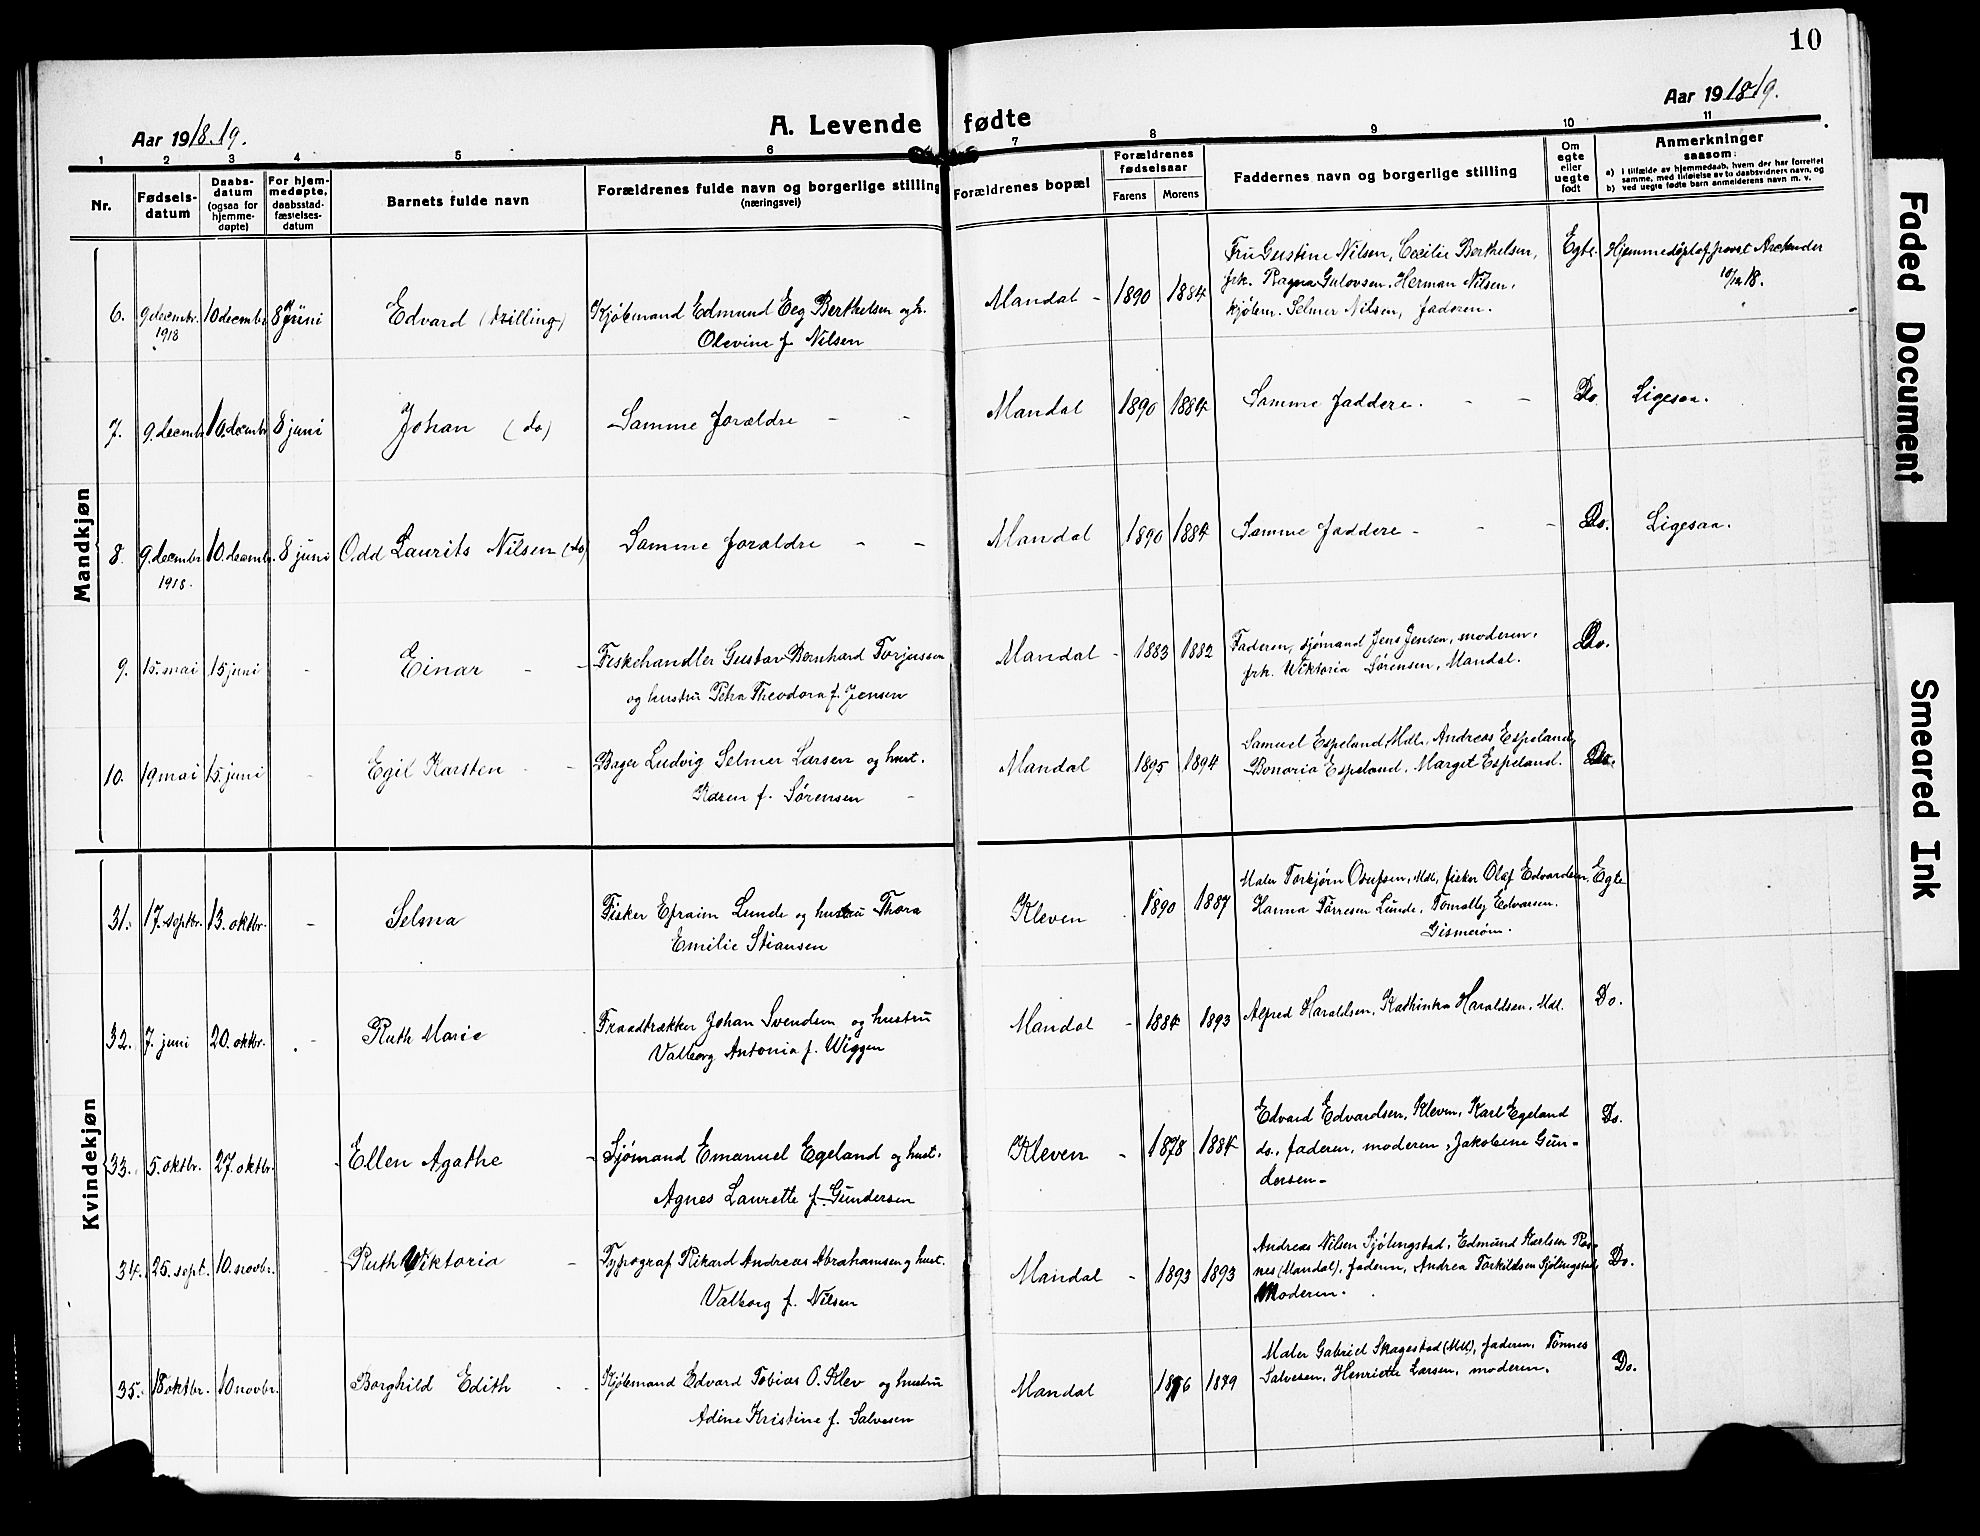 10
Aar 1918.19.
A. Levende fødte
Aar 1918/19.
1 2 3 4 5 6 7 8 9 10 11
Nr.
Fødsels-
datum
Daabs-
datum
(ogsaa for
hjemme-
døpte)
For hjem-
medøpte,
daabsstad-
fæstelses-
datum
Barnets fulde navn
Forældrenes fulde navn og borgerlige stilling
(næringsvei)
Forældrenes bopæl
Forældrenes
fødselsaar
Farens Morens
Faddernes navn og borgerlige stilling
Om
egte
eller
uegte
født
Anmerkninger
saasom:
a) i tilfælde av hjemmedaab, hvem der har forrettet
samme, med tilføielse av to daabsvidners navn, og
b) ved uegte fødte barn anmelderens navn m. v.
Mandkjøn
6. 9 decembr. 1918 10 decembr. 8 juni
Edvard (trilling)
Kjøbmand Edmund Eeg Berthelsen og h.
Olevine f. Nilsen
Mandal - 1890 1884
Fru Gustine Nilsen, Cecilie Berthelsen,
frk. Ragna Gulovsen, Herman Nilsen,
kjøbm. Selmer Nilsen, faderen.
Egte.
Hjemmedøpt af prost Arctander
10/12 18.
7. 9. decembr. 10. decembr. 8 juni
Johan (do)
Samme forældre - -
Mandal 1890 1884
Samme faddere. - -
Do.
Ligesaa.
8. 9. decembr. 1918. 10. decembr. 8 juni
Odd Laurits Nilsen (do)
Samme forældre - -
Mandal 1890 1884
Samme faddere - - -
Do.
Ligesaa.
9. 15. mai 15 juni -
Einar - -
Fiskehandler Gustav Bernhard Torjussen
og hustru Petra Theodora f. Jensen
Mandal - 1883 1882
Faderen, sjømand Jens Jensen, moderen,
frk. Wiktoria Sørensen, Mandal.
Do.
10. 19 mai 15. juni -
Egil Karsten - -
Bager Ludvig Selmer Larsen og hust.
Karen f. Sørensen -
Mandal 1895 1894
Samuel Espeland, Mdl., Andreas Espeland,
Bonaria Espeland, Margit Espeland.
Do.
Kvindekjøn
31. 17. septbr. 13. oktbr. -
Selma
Fisker Efraim Lunde og hustru Thora
Emilie Stiansen
Kleven 1890 1887
Maler Torkjørn Osufsen, Mdl., fisker Olaf Edvardsen,
Hanna Tørresen Lunde, Tomally Edvarsen.
Gismerøen.
Egte
32. 7. juni 20. oktbr. -
Ruth Marie
Traadtrækker Johan Svendsen og hustru
Valborg Antonia f. Wiggen
Mandal - 1884 1893
Alfred Haraldsen, Kathinka Haraldsen, Mdl.
Do.
33. 5. oktbr. 27. oktbr. -
Ellen Agathe -
Sjømand Emanuel Egeland og hust.
Agnes Laurette f. Gundersen
Kleven - 1878 1884
Edvard Edvardsen, Kleven, Karl Egeland
ds., faderen, moderen, Jakobine Gun-
dersen -
Do.
34. 25. sept. 10. novbr. -
Ruth Wiktoria -
Typograf Rikard Andreas Abrahamsen og hust.
Valborg f. Nilsen
Mandal - 1893 1893
Andreas Nilsen Sjølingstad, Edmund Karlsen Ros-
nes (Mandal), faderen, Andrea Torkildsen Sjølingstad,
Moderen.
Do.
35. 18 oktbr. 10 novbr.
Borghild Edith - -
Kjøbmand Edvard Tobias O. Klev og hustru
Adine Kristine f. Salvesen
Mandal 1876 1879
Maler Gabriel Skagestad (Mdl), faderen, Tønnes
Salvesen, Henriette Larsen, moderen.
Do.
Faded Document
Smeared Ink